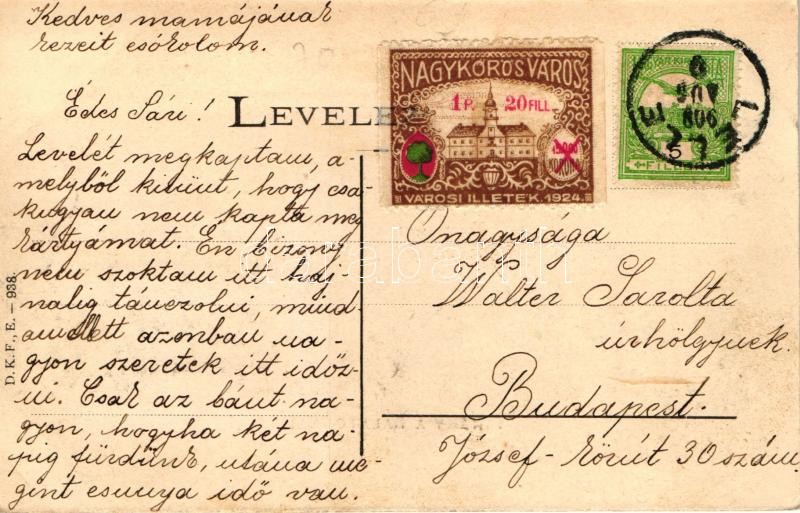 Kedves mamájának
kezeit csókolom.
Édes Sári!
LEVELE
Levelét megkaptam, a-
melyből kitűnt, hogy csa-
kugyan nem kapta meg
kártyámat. Én bizony
nem szoktam itt haj-
nalig tánczolni, mind-
amellett azonban na-
gyon szeretek itt időz-
ni. Csak az bánt na-
gyon, hogyha két na-
pig fürdünk, utána me-
gint csunya idő van.
D. K. F., E. – 938.
NAGYKŐRÖS VÁROS
1 P. 20 FILL.
KORONA
VÁROSI ILLETÉK 1924.
FILLÉR
5
908
AUG
Önagysága
Walter Sarolta
úrhölgynek
Budapest.
József-körút 30 szám.
darabanth